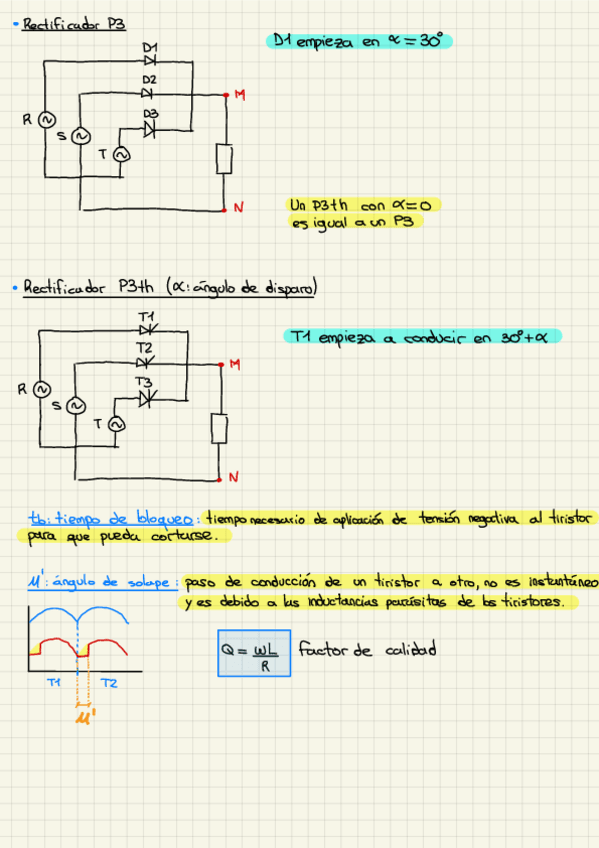 • Rectificador P3
D1 empieza en α = 30°
D1
D2
M
D3
R
S
T
N
Un P3th con α=0
es igual a un P3
• Rectificador P3th (α: ángulo de disparo)
T1
T1 empieza a conducir en 30°+α
T2
M
T3
R
S
T
N
tb: tiempo de bloqueo: tiempo necesario de aplicación de tensión negativa al tiristor
para que pueda cortarse.
μ': ángulo de solape: paso de conducción de un tiristor a otro, no es instantáneo
y es debido a las inductancias parásitas de los tiristores.
Q = ωL/R factor de calidad
T1 T2
μ'